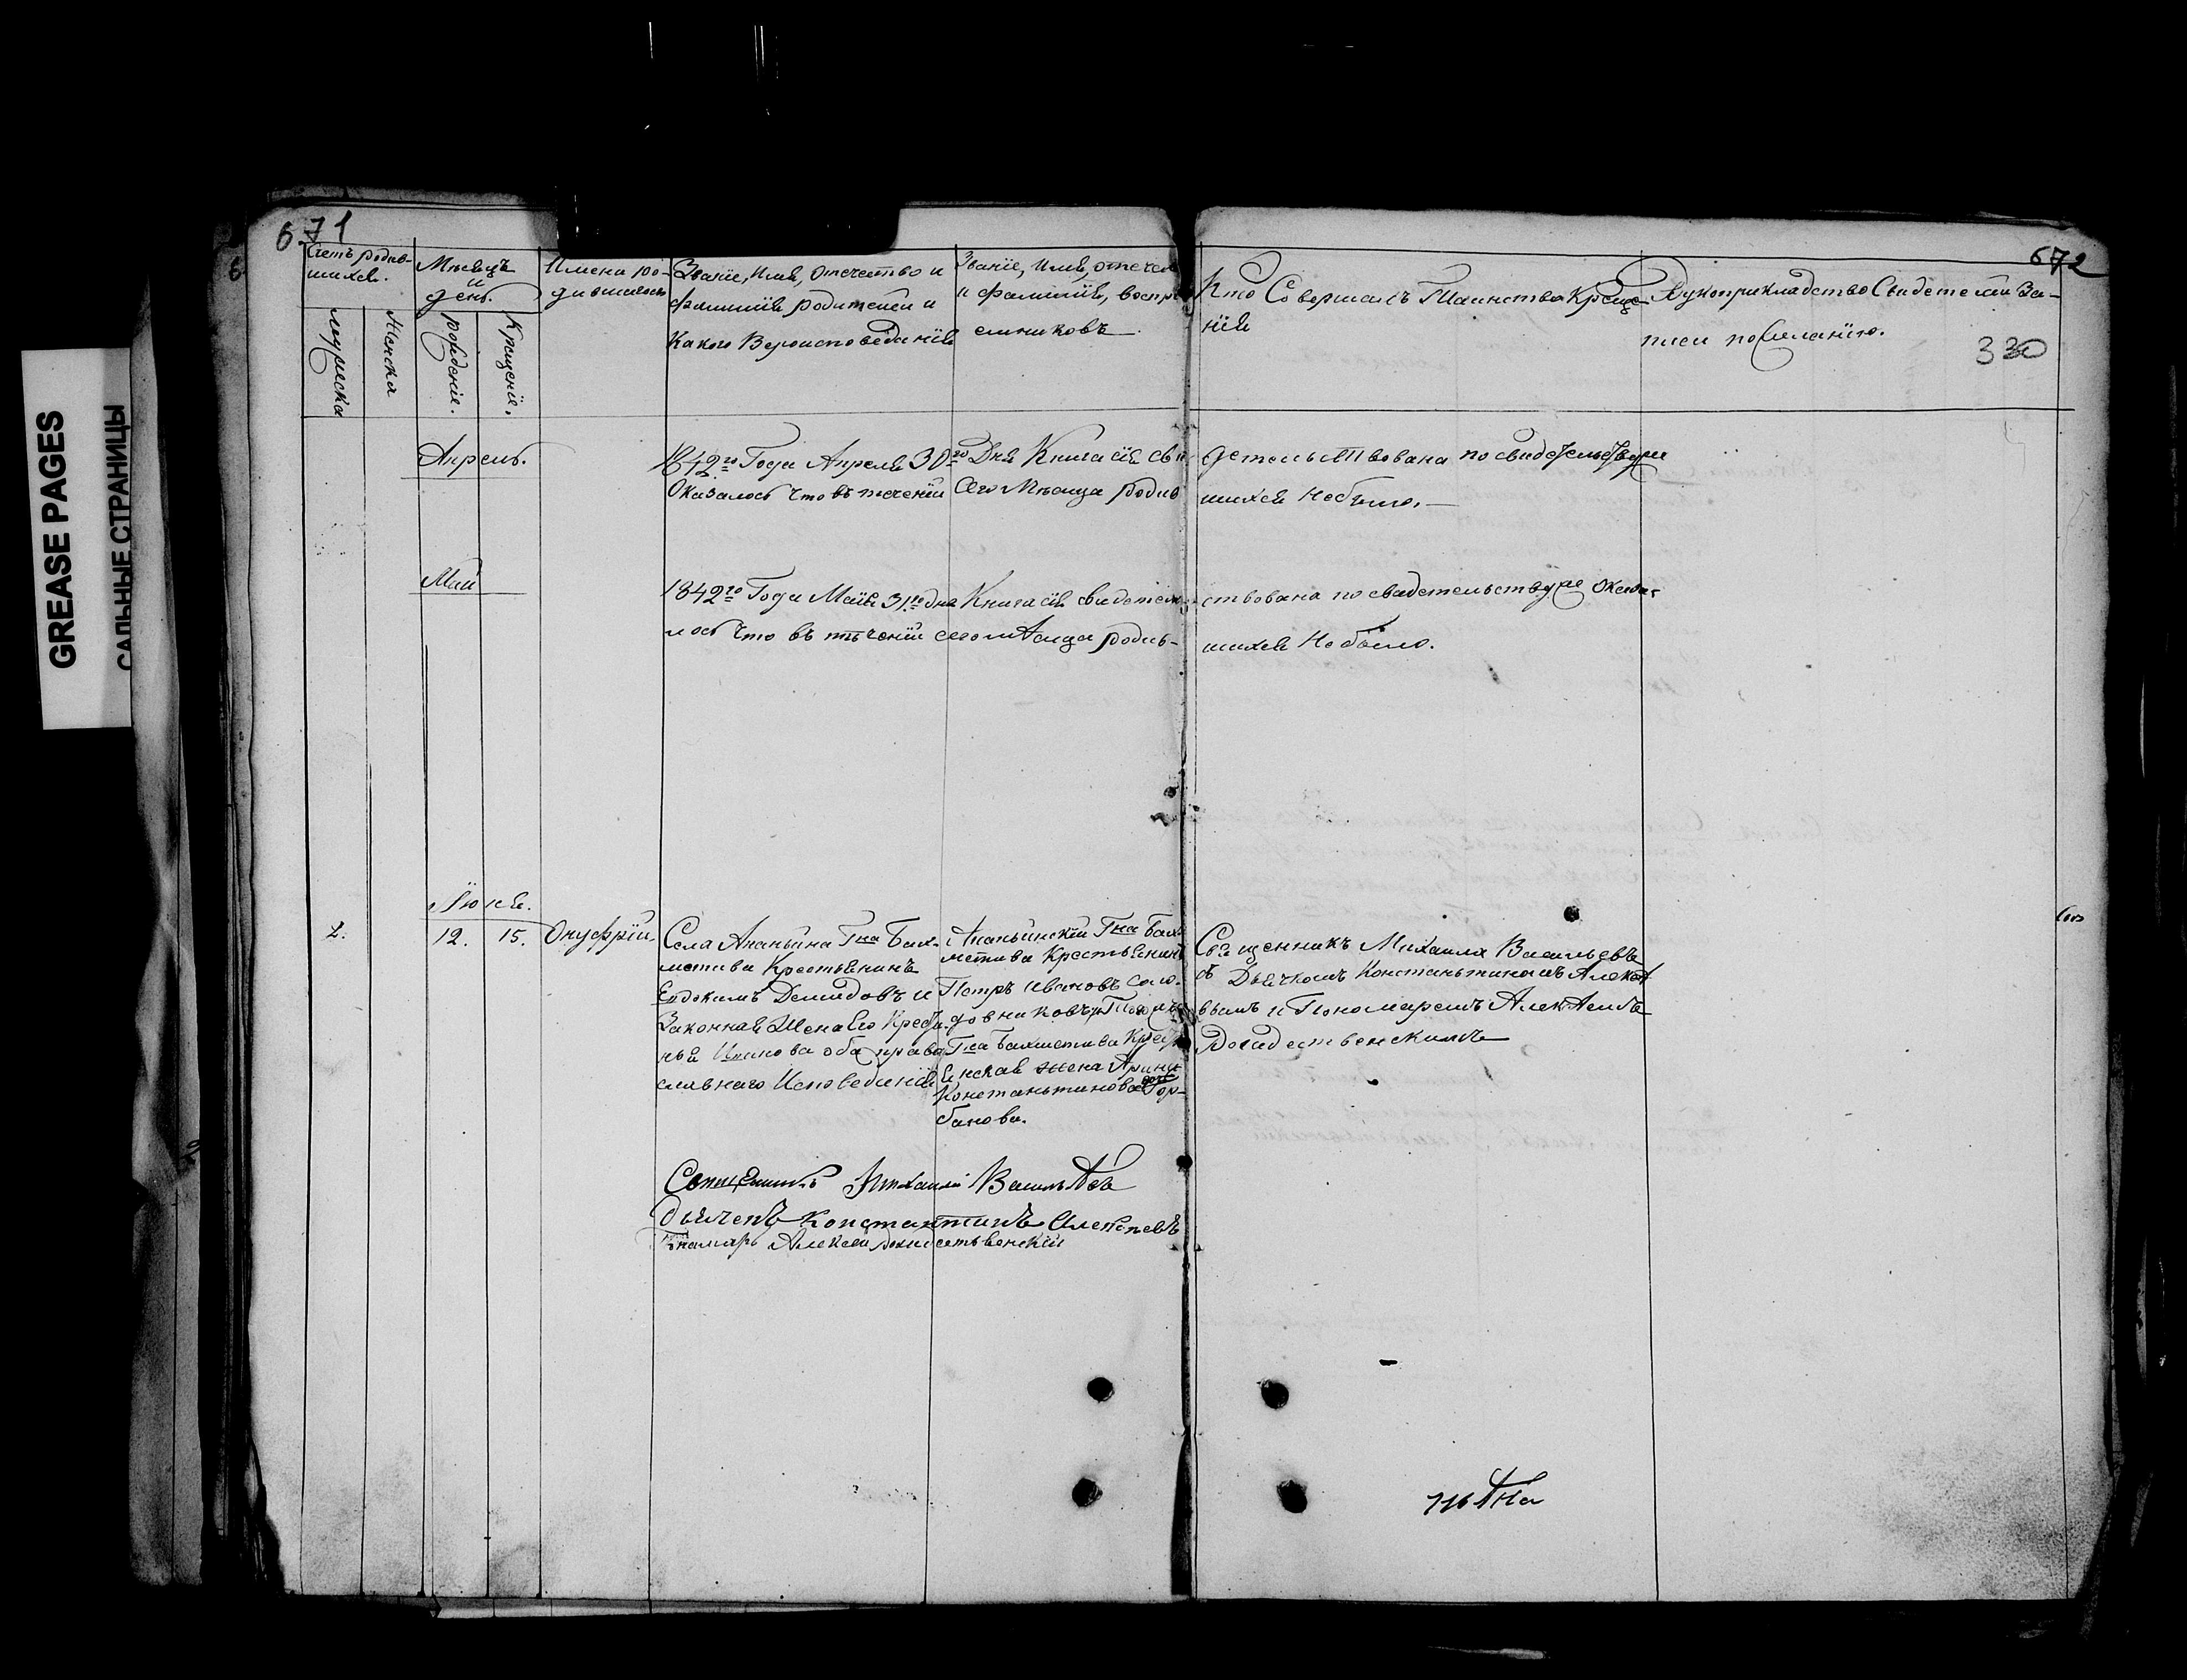 GREASE PAGES
САЛЬНЫЕ СТРАНИЦЫ
671
672
330
Счетъ родив-
шихся.
мужеска
женска
Мѣсяцъ
и
день.
рожденіе.
Крещеніе.
Имена ро-
дившихся
Званіе, Имя, Отечество и
фамилія родителей и
Какого Вероисповеданія
Званіе, Имя, отечес
и фамилія, воспрі
емниковъ.
Кто Совершалъ Таинство Креще-
нія
Рукоприкладство Свидетелей За-
писи по Желанію.
Апрель.
1842го Года Апреля 30го Дня Книга сія сви детельствована по свидетельству
Оказалось что въ теченіи Сего Мѣсяца родив шихся Небыло.
Май
1842го Года Маія 31го дня Книга сія свидетель ствована по свидетельству Оказа-
лось что въ теченіи сего мѣсяца родив- шихся Небыло.
Іюня.
2.
12. 15.
Онуфрій
Села Ананьина Гна Бах-
метива Крестьянинъ
Евдокимъ Демидовъ и
Законная Жена Его
оба право
славнаго Исповеданія
Ананьинскій Гна Бах
метива Крестьянинъ
Петръ Ивановъ
Гна Бахметива Крес
янская жена Арина
Констаньтинова Гор-
банова.
Священникъ Михаилъ Васильевъ
съ Дьячкомъ Констаньтиномъ Алексѣ
вымъ и Пономаремъ Алексѣемъ
Рождественскимъ
Священникъ Михаилъ Васильѣвъ
Дьячекъ Константинъ Алексѣевъ
Понамарь Алексей Рождественскій